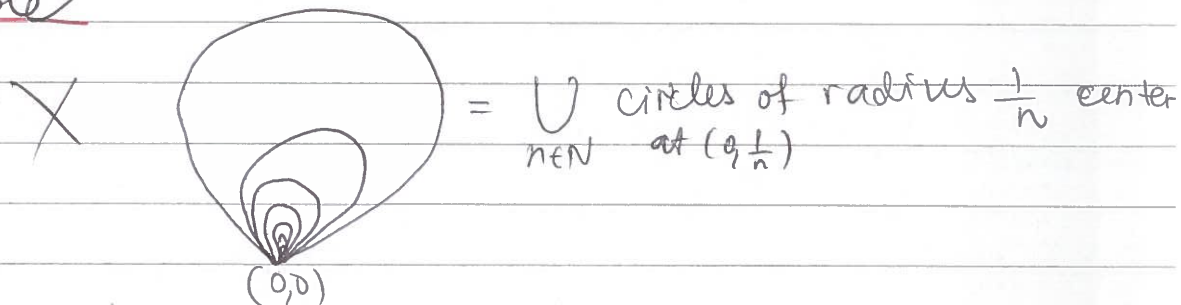 X = ⋃ circles of radius 1/n center
n∈N at (0, 1/n)
(0,0)